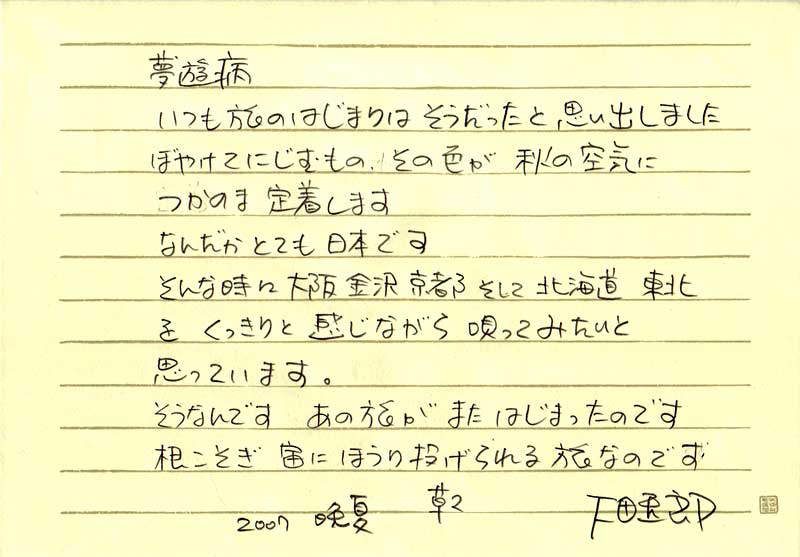 夢遊病
いつも旅のはじまりは そうだったと 思い出しました
ぼやけてにじむもの、その色が 秋の空気に
つかのま 定着します
なんだか とても 日本です
そんな時に 大阪 金沢 京都 そして 北海道 東北
を くっきりと 感じながら 唄ってみたいと
思っています。
そうなんです あの旅が また はじまったのです
根こそぎ 宙に ほうり投げられる 旅なのです
2007 晩夏 草々 下田逸郎